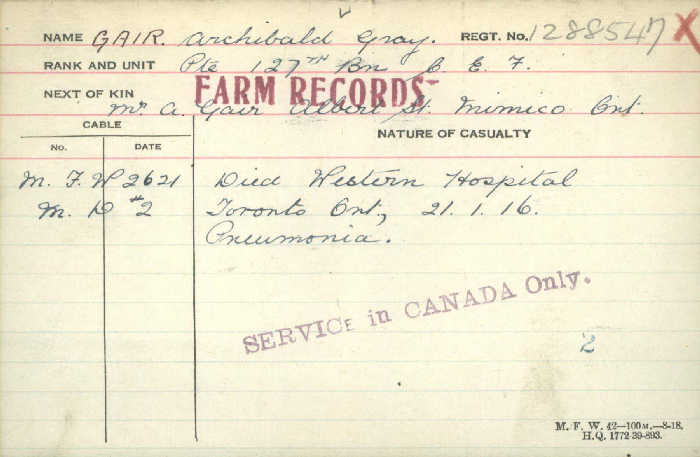 NAME GAIR. Archibald Gray. REGT. No. 1288547 X
RANK AND UNIT Pte 127TH Bn C. E. F.
FARM RECORDS
NEXT OF KIN
Mr A. Gair Albert St. Mimico Ont.
CABLE NATURE OF CASUALTY
No. DATE
M. F. W 2621 Died Western Hospital
M. D #2 Toronto Ont., 21.1.16.
Pneumonia.
SERVICE in CANADA Only.
2
M. F. W. 42—100M.—8-18.
H.Q. 1772-39-893.